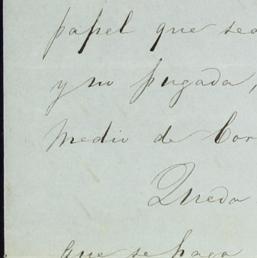 papel que sea
y no pugada,
medio de Cor
Queda
que se haga